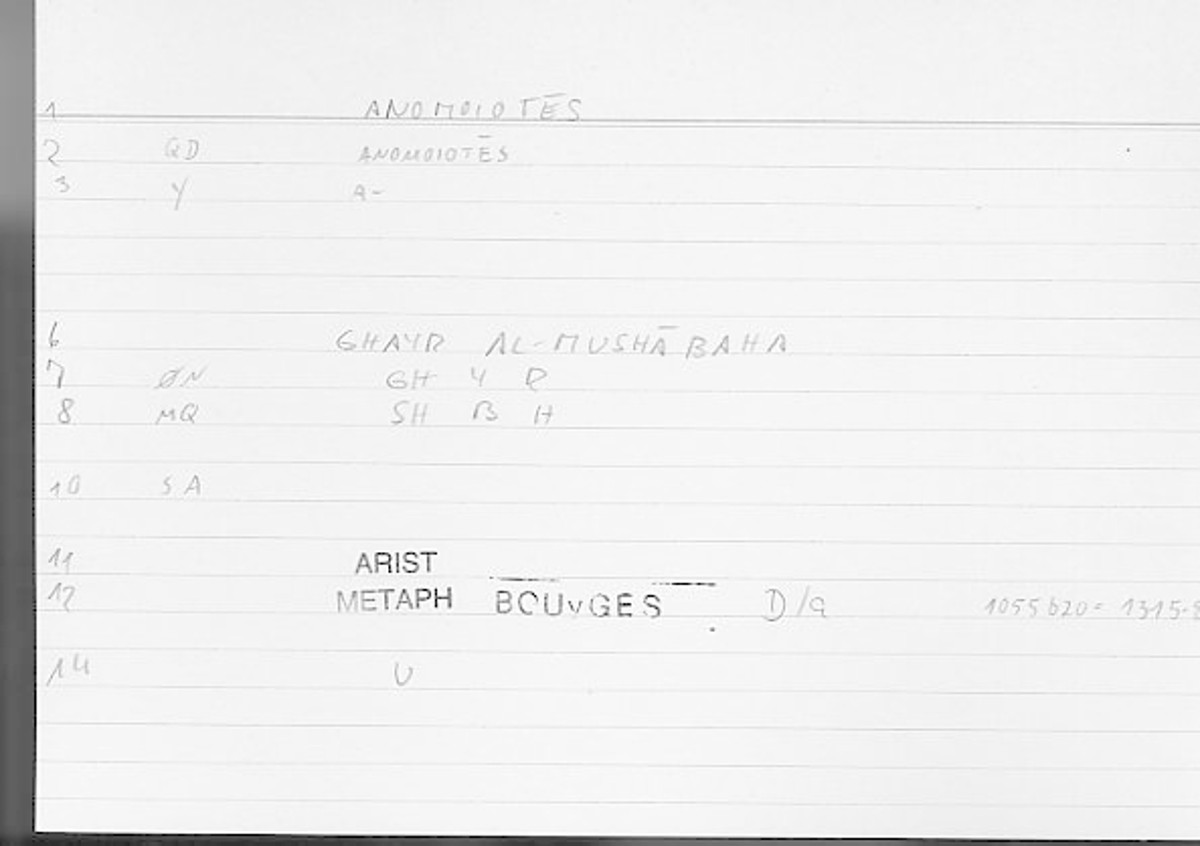 1 ANOMOIOTĒS
2 QD ANOMOIOTĒS
3 Y A-
6 GHAYR AL-MUSHĀBAHA
7 ØN GH Y R
8 MQ SH B H
10 SA
11 ARIST
12 METAPH BOUvGES D/a 1055b20=
14 U